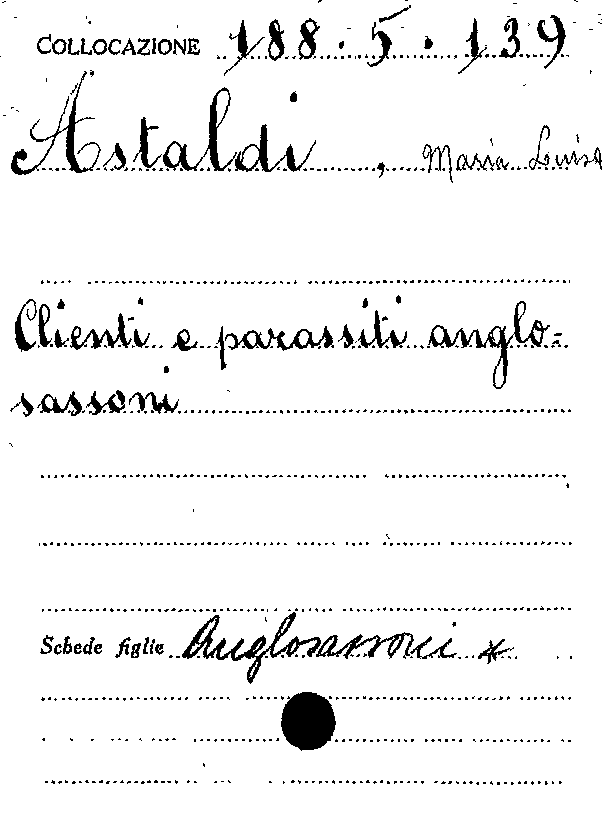 COLLOCAZIONE 188.5.139
Astaldi, Maria Luisa
Clienti e parassiti anglo=
sassoni
Schede figlie Anglosassoni *